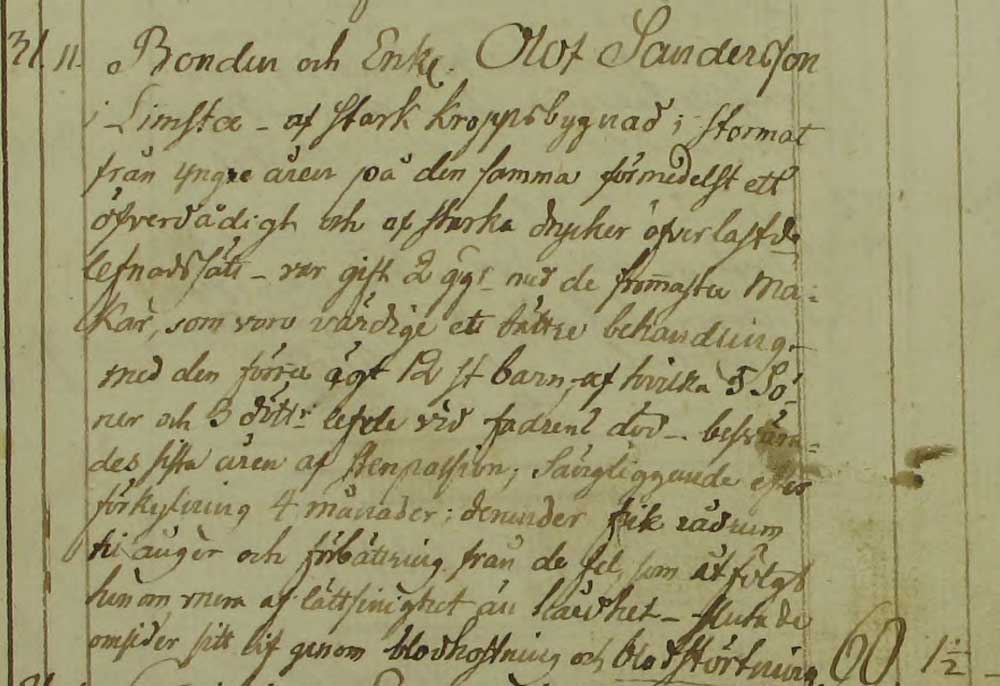 31. 11. Bonden och Enkl. Olof Sandersson
i Limsta – af stark kroppsbygnad; stormat
från yngre åren på den samma förmedelst ett
öfverdådigt och af starka drycker öfverlastade
lefnadssätt – var gift 2 ggr med de frommasta Ma-
kar, som voro värdige ett bättre behandling. –
med den förra ägt 12 st barn, af hvilka 5 Sö-
ner och 3 döttr lefde vid fadrens död – besvära-
des sista åren af Stenpassion; Sängliggande efter
förkylning 4 månader; derunder fick rådrum
till ånger och förbättring från de fel, som åtföljt
honom mera af lättsinighet än hårdhet – slutade
omsider sitt lif genom blodhostning och blodstörtning. 60. 1 1/2 –